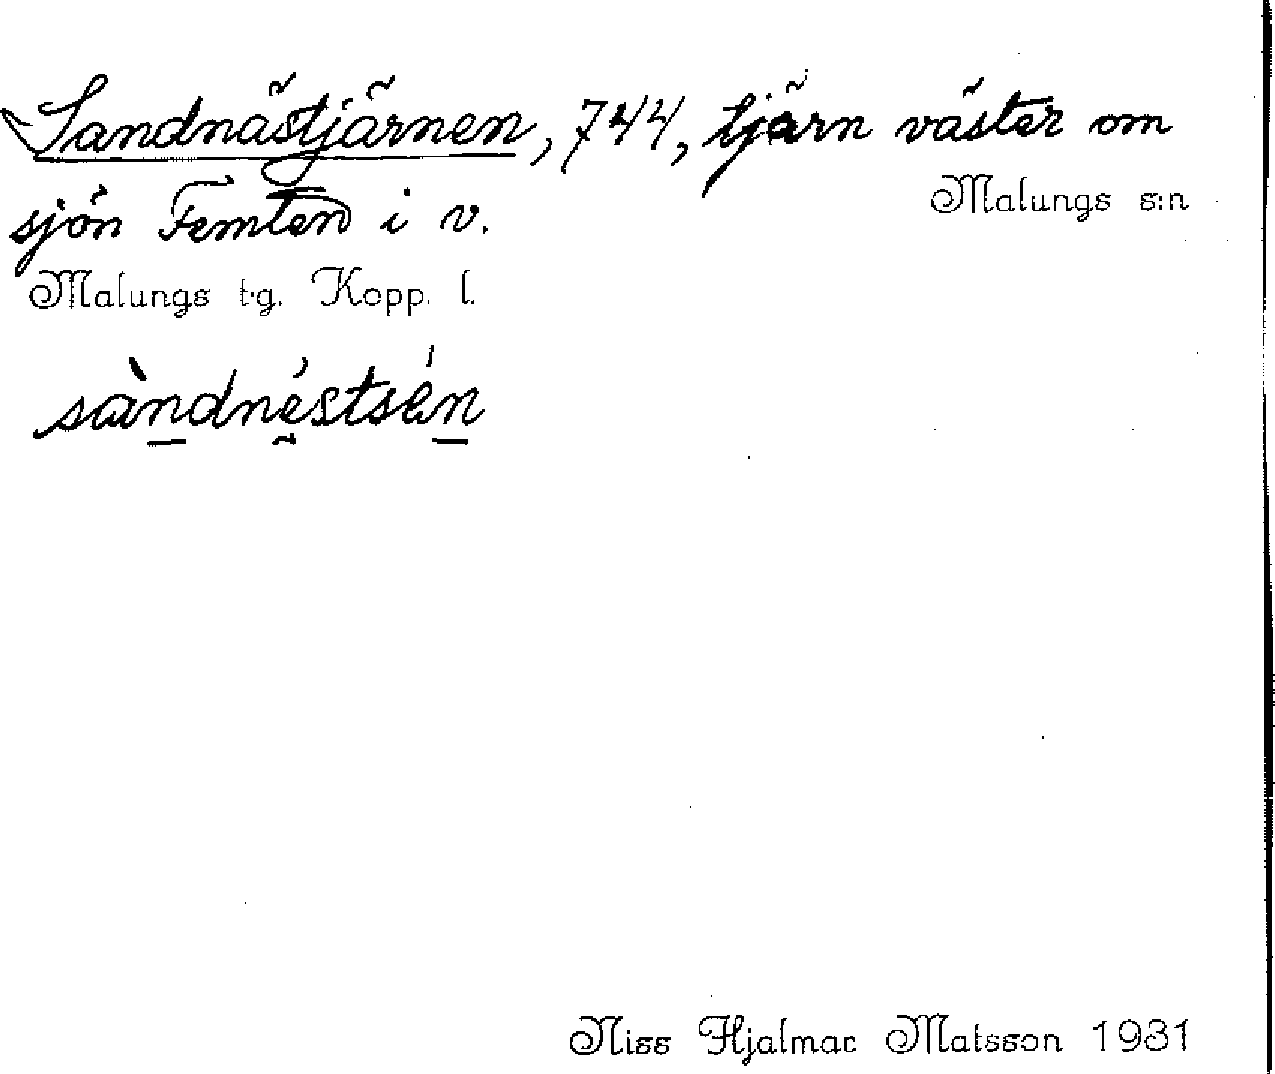 Sandnästjärnen, 744, tjärn väster om
Malungs s:n
sjön Femten i v.
Malungs t·g. Kopp. l.
sàndnéstsén
Niss Hjalmar Matsson 1931